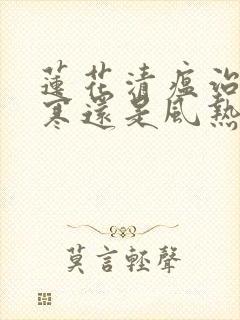 蓮花清瘟治
寒還是風熱
莫言輕聲